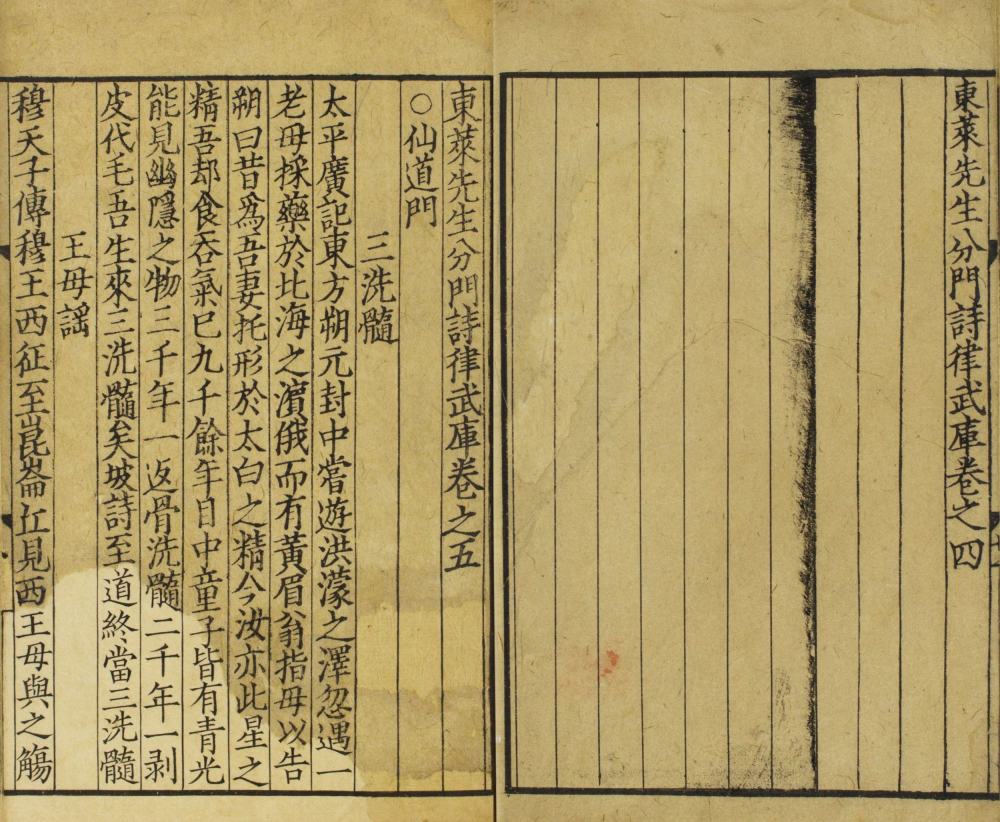 東萊先生分門詩律武庫卷之四
東萊先生分門詩律武庫卷之五
○仙道門
三洗髓
太平廣記東方朔元封中嘗遊洪濛之澤忽遇一
老母採藥於北海之濵俄而有黃眉翁指母以告
朔曰昔爲吾妻托形於太白之精今汝亦此星之
精吾却食吞氣巳九千餘年目中童子皆有青光
能見幽隱之物三千年一返骨洗髓二千年一剥
皮代毛吾生來三洗髓矣坡詩至道終當三洗髓
王母謠
穆天子傳穆王西征至崑崙丘見西王母與之觴